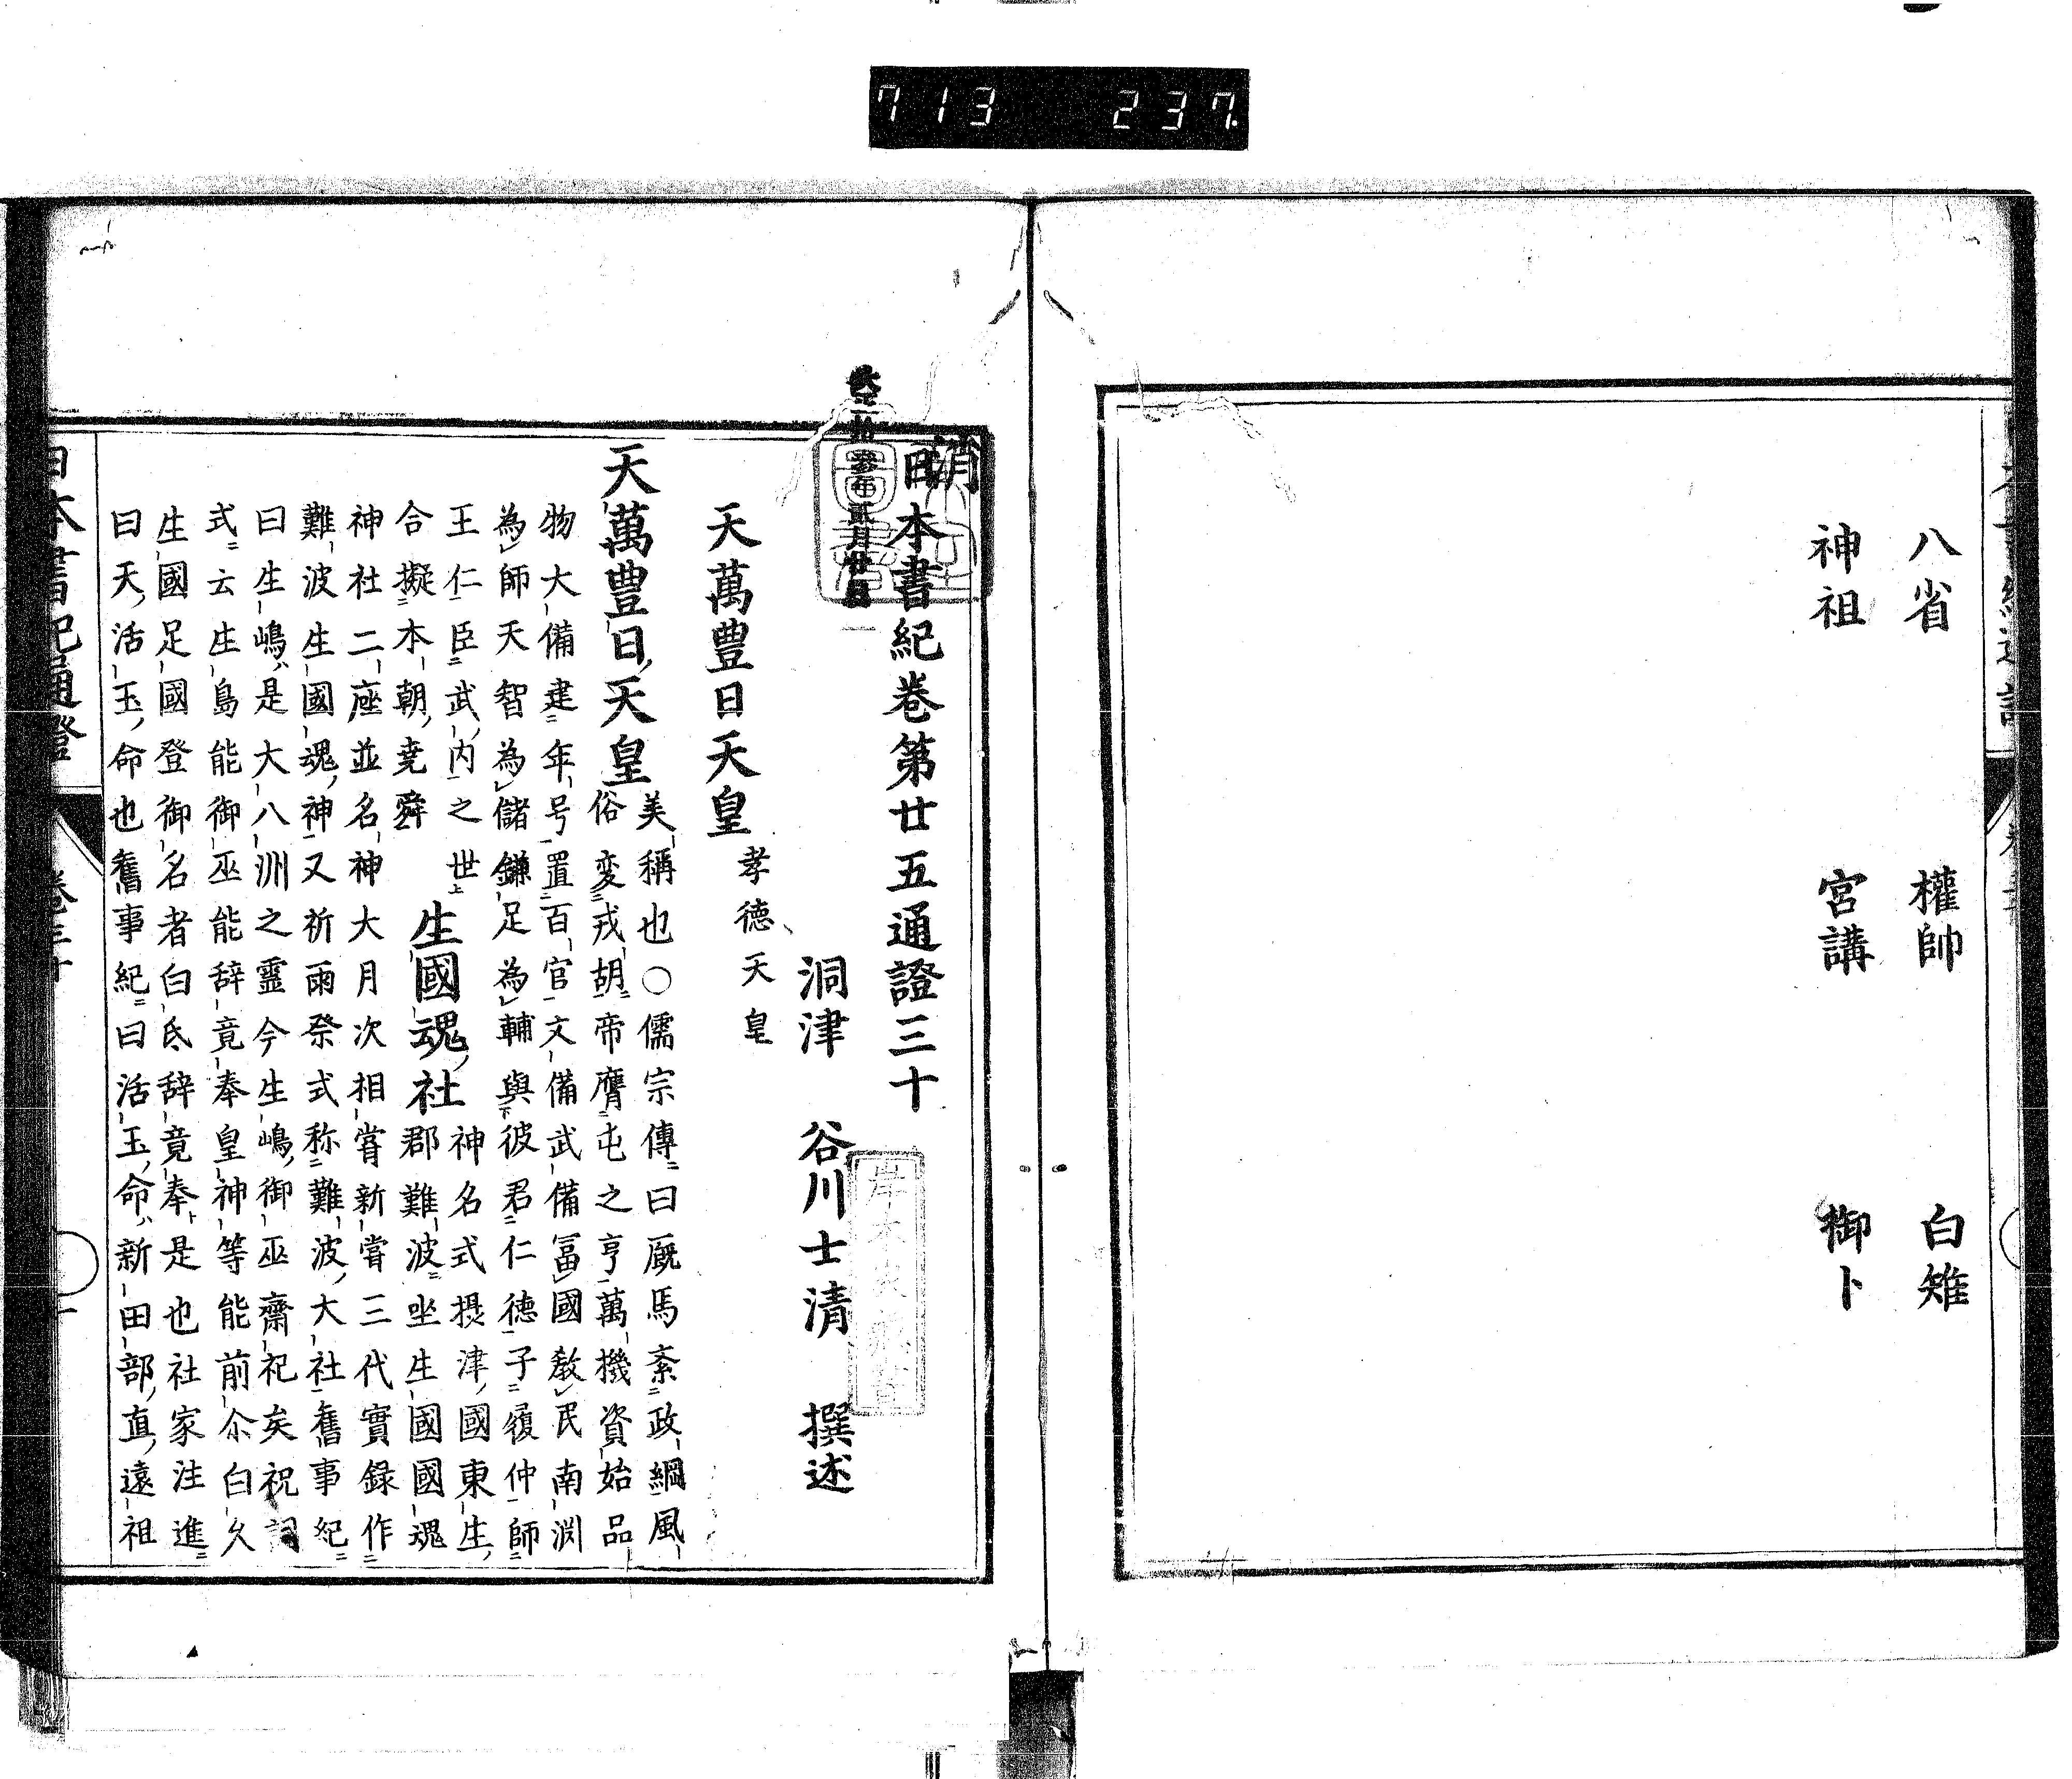 713 237
八省 權帥 白雉
神祖 宮講 御卜
日本書紀卷第廿五通證三十
洞津 谷川士清 撰述
天萬豊日天皇 孝徳天皇
天萬豊日天皇 美稱也○儒宗傳曰厩馬紊政綱風
俗変戎胡帝膺屯之亨萬機資始品
物大備建年号置百官文備武備冨國教民南渕
為師天智為儲鎌足為輔與彼君仁徳子履仲師
王仁臣武内之世 神名式摂津國東生
合擬本朝尭舜 生國魂社 郡難波坐生國國魂
神社二座並名神大月次相甞新甞三代實録作
難波生國魂神又祈雨祭式称難波大社舊事紀
曰生嶋是大八洲之靈今生嶋御巫齋祀矣祝詞
式云生島能御巫能辞竟奉皇神等能前尒白久
生國足國登御名者白氐辞竟奉是也社家注進
曰天活玉命也舊事紀曰活玉命新田部直遠祖
日本書紀通證 卷三十 一